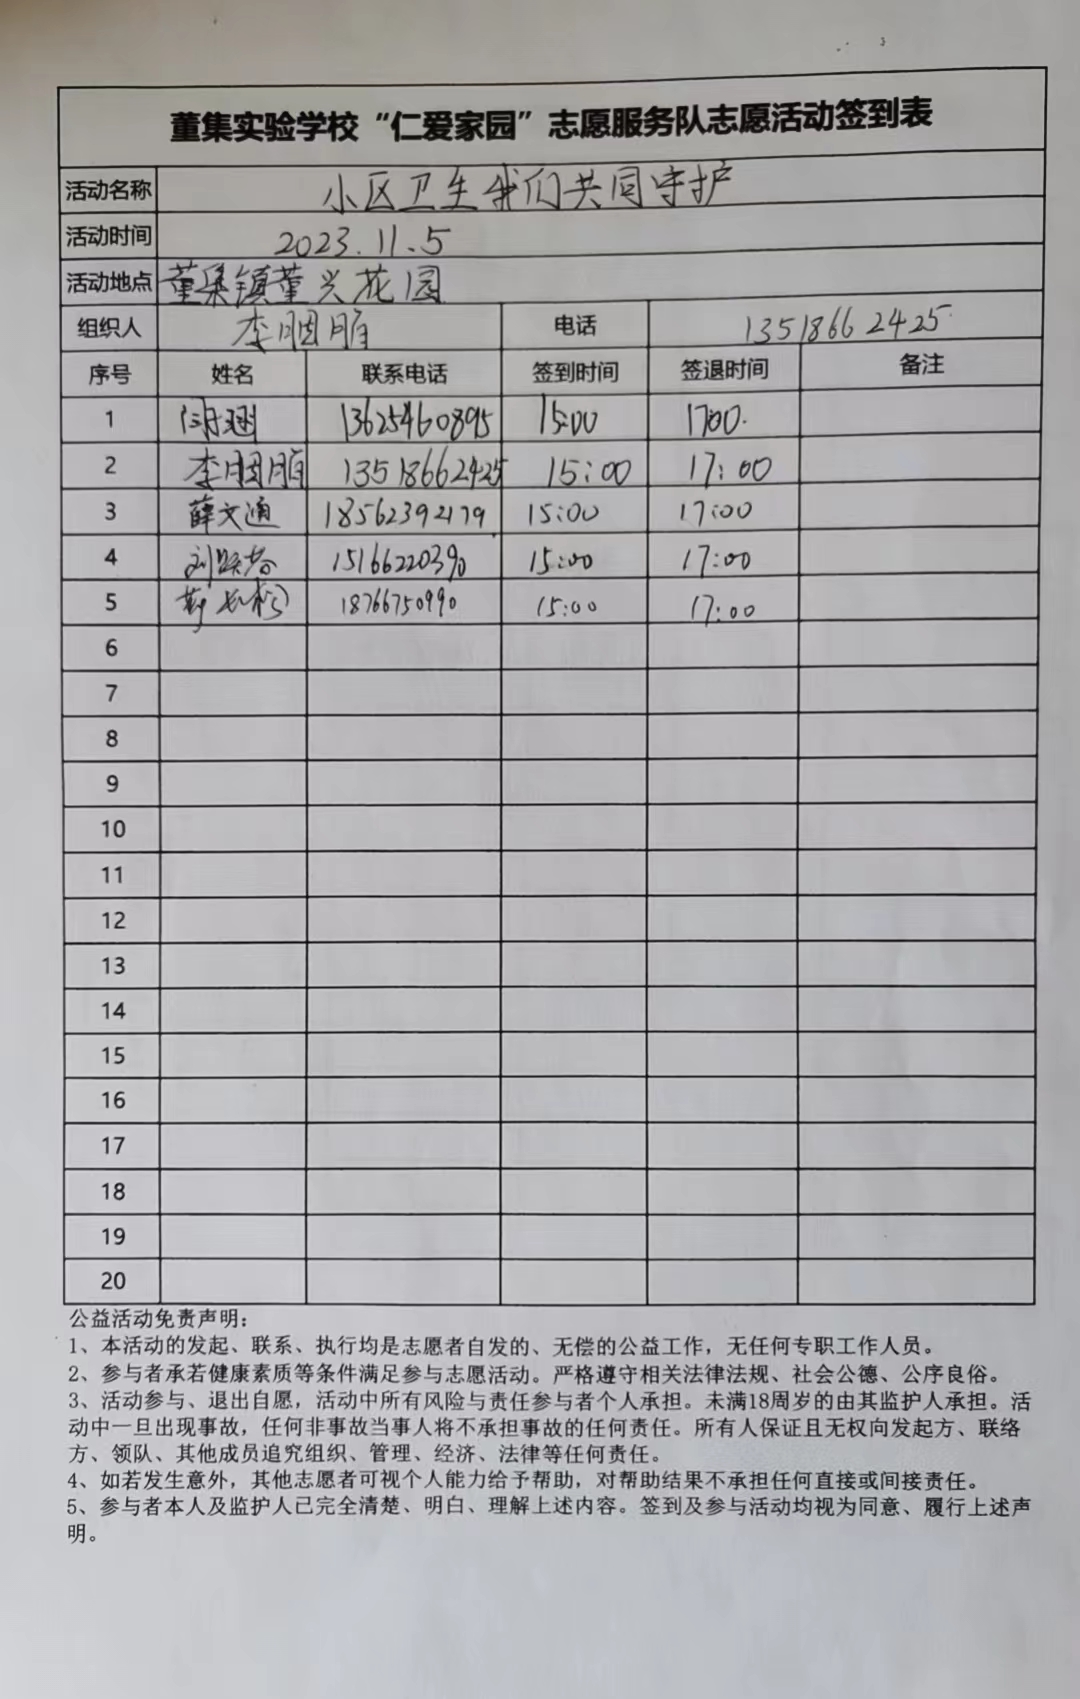 董集实验学校“仁爱家园”志愿服务队志愿活动签到表
活动名称 小区卫生我们共同守护
活动时间 2023.11.5
活动地点 董集镇董兴花园
组织人 李胭脂 电话 13518662425
序号 姓名 联系电话 签到时间 签退时间 备注
1 13625460895 15:00 17:00.
2 李胭脂 13518662425 15:00 17:00
3 薛文通 18562392179 15:00 17:00
4 15166220390 15:00 17:00
5 18766750990 15:00 17:00
6
7
8
9
10
11
12
13
14
15
16
17
18
19
20
公益活动免责声明：
1、本活动的发起、联系、执行均是志愿者自发的、无偿的公益工作，无任何专职工作人员。
2、参与者承若健康素质等条件满足参与志愿活动。严格遵守相关法律法规、社会公德、公序良俗。
3、活动参与、退出自愿，活动中所有风险与责任参与者个人承担。未满18周岁的由其监护人承担。活
动中一旦出现事故，任何非事故当事人将不承担事故的任何责任。所有人保证且无权向发起方、联络
方、领队、其他成员追究组织、管理、经济、法律等任何责任。
4、如若发生意外，其他志愿者可视个人能力给予帮助，对帮助结果不承担任何直接或间接责任。
5、参与者本人及监护人已完全清楚、明白、理解上述内容。签到及参与活动均视为同意、履行上述声
明。